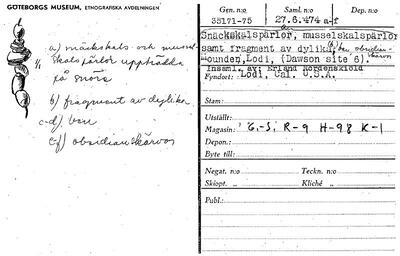 GÖTEBORGS MUSEUM, ETNOGRAFISKA AVDELNINGEN
a) snäckskals och mussel-
skalspärlor uppträdda
på snöre
1/1
b) fragment av dylika
c-d) ben
e-f) obsidianskärvor
Gen. n:o
35171-75
Saml. n:o
27.6.474 a-f
Dep. n:o
Snäckskalspärlor, musselskalspärlor
samt fragment av dylika, (b) ben, obsidian-
skärvor
Mounden, Lodi, (Dawson site 6).
Insaml. av: Erland Nordenskiöld
Fyndort: Lodi, Cal. U.S.A.
Stam:
Utställt:
Magasin: C.-S; R-9 H-98 K-1
Depon.:
Byte till:
Negat. n:o
Teckn. n:o
Skiopt. „
Kliché „
Publ.: